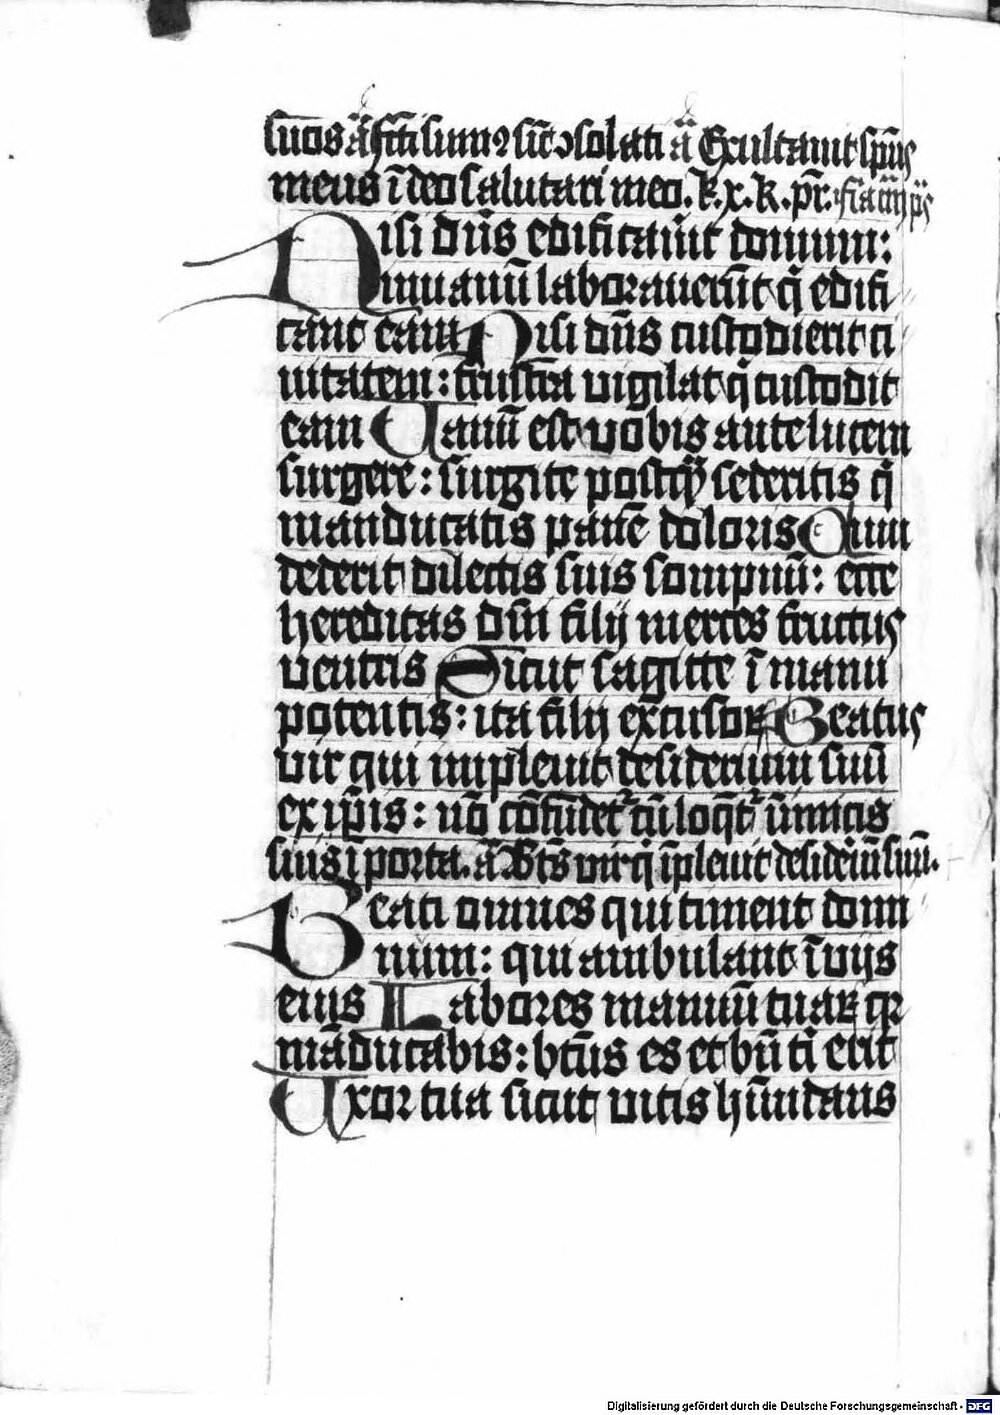 suos ā fc̄ti sumꝰ sic̄ ↄsolati ā Exultauit sp̄us
meus ī deo salutari meo. k. x. k. pr̄.
Nisi dn̄s edificauīt domum:
Jnuanū laborauerūt qͥ edifi
cant eam Nisi dn̄s custodierit ci
uitatem: frustra vigilat qͥ custodit
eam Uanū est vobis ante lucem
surgere: surgite postqᷓ sederitis qͥ
manducatis panē doloris Cum
dederit dilectis suis sompnū: ecce
hereditas dn̄i filij merces fructus
ventris Sicut sagitte ī manu
potentis: ita filij excusoꝝ Beatus
vir qui impleuit desiderium suū
ex ip̄is: nō cōfūdet᷑ cū loqt᷑ īimicis
suis ī porta. ā Bt̄s vir qͥ īpleuit desideriū suū.
Beati omnes qui timent domi
num: qui ambulant ī vijs
eius Labores manuū tuaꝝ qꝛ
māducabis: bt̄us es et bn̄ ti erit
Uxor tua sicut vitis hūndans
Digitalisierung gefördert durch die Deutsche Forschungsgemeinschaft - DFG